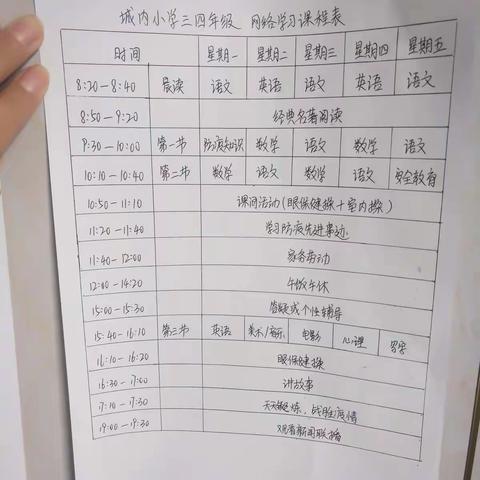 城内小学三四年级 网络学习课程表
时间 星期一 星期二 星期三 星期四 星期五
8:20-8:40 晨读 语文 英语 语文 英语 语文
8:50-9:20 经典名著阅读
9:30-10:00 第一节 防疫知识 数学 语文 数学 语文
10:10-10:40 第二节 数学 语文 数学 语文 安全教育
10:50-11:10 课间活动(眼保健操+室内操)
11:20-11:40 学习防疫先进事迹
11:40-12:00 家务劳动
12:00-14:20 午饭午休
15:00-15:30 答疑或个性辅导
15:40-16:10 第三节 英语 美术/音乐 电影 心理
16:10-16:20 眼保健操
16:30-17:00 讲故事
17:10-17:30 天天锻炼,战胜疫情
19:00-19:30 观看新闻联播